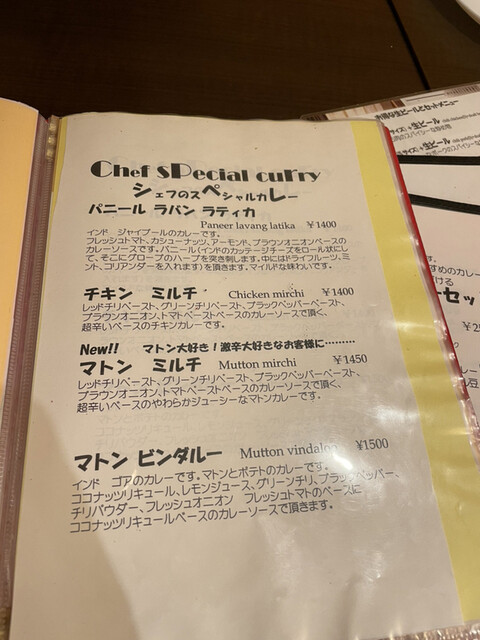 Chef sPecial cuRry
シェフのスペシャルカレー
パニール ラバン ラティカ
Paneer lavang latika ￥1400
インド ジャイプールのカレーです。
フレッシュトマト、カシューナッツ、アーモンド、ブラウンオニオンベースの
カレーソースです。パニール(インドのカッテージチーズをロール状にし
て、そこにグローブのハーブを突き刺します。中にはドライフルーツ、ミ
ント、コリアンダーを入れます)を頂きます。マイルドな味わいです。
チキン ミルチ Chicken mirchi ￥1400
レッドチリペースト、グリーンチリペースト、ブラックペッパーペースト、
ブラウンオニオン、トマトペーストベースのカレーソースで頂く、
超辛いベースのチキンカレーです。
New!! マトン大好き！激辛大好きなお客様に………
マトン ミルチ Mutton mirchi ￥1450
レッドチリペースト、グリーンチリペースト、ブラックペッパーペースト、
ブラウンオニオン、トマトペーストベースのカレーソースで頂く、
超辛いベースのやわらかジューシーなマトンカレーです。
マトン ビンダルー Mutton vindaloo ¥1500
インド ゴアのカレーです。マトンとポテトのカレーです。
ココナッツリキュール、レモンジュース、グリーンチリ、ブラックペッパー、
チリパウダー、フレッシュオニオン フレッシュトマトのベースに
ココナッツリキュールベースのカレーソースで頂きます。
お得な生ビールとセットメニュー
サイズ)+生ビール
サイズ)+生ビール
すめのカレー
ける
ーセッ